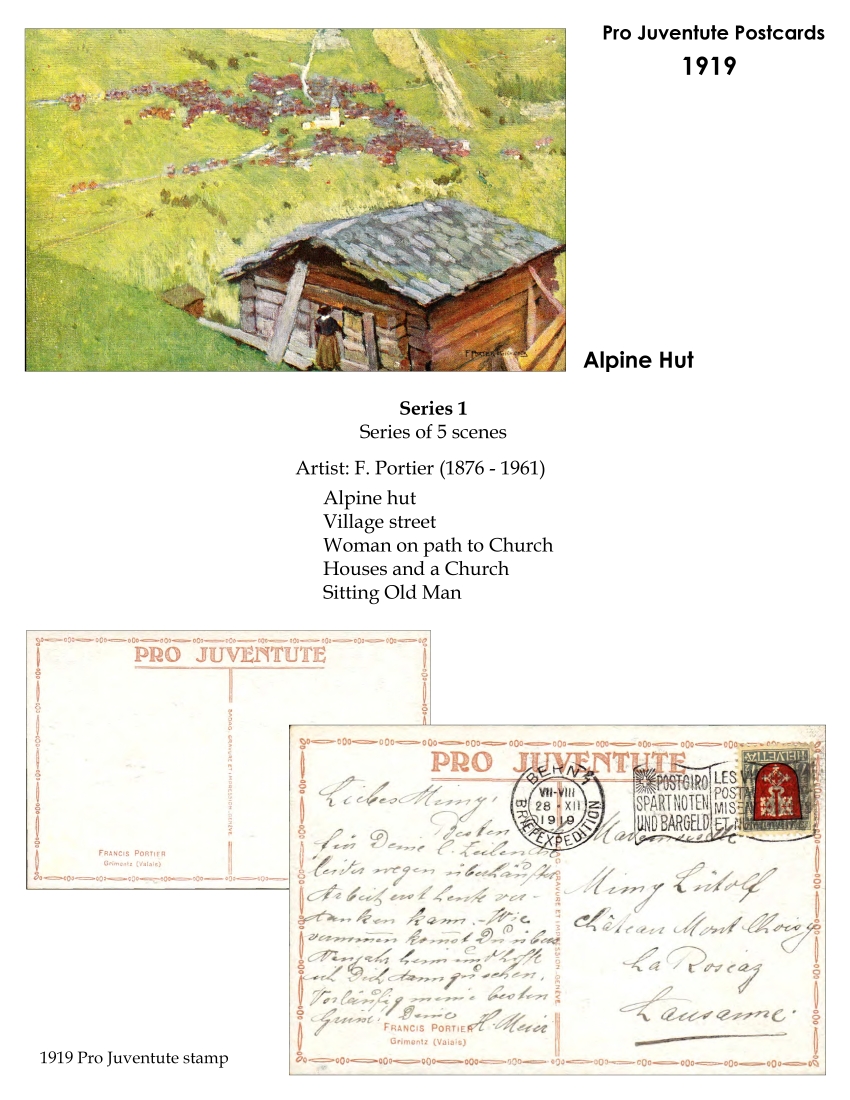 Pro Juventute Postcards
1919
F. PORTIER
Alpine Hut
Series 1
Series of 5 scenes
Artist: F. Portier (1876 - 1961)
Alpine hut
Village street
Woman on path to Church
Houses and a Church
Sitting Old Man
PRO JUVENTUTE
SADAG, GRAVURE ET IMPRESSION - GENÈVE
FRANCIS PORTIER
Grimentz (Valais)
PRO JUVENTUTE
BERN
VII-VIII
28 XII
1919
BRIEFEXPEDITION
POSTGIRO
SPART NOTEN
UND BARGELD
LES
ET
HELVETIA
Liebes Mimy!
Besten
für Deine l. Zeilen
leider wegen überhäufter
Arbeit erst heute ver-
danken kann. - Wie
vernommen kommst Du übers
Neujahr heim und hoffe
ich Dich dann zu sehen.
Vorläufig meine besten
Grüsse. Deine H. Meier
GRAVURE ET IMPRESSION - GENÈVE
FRANCIS PORTIER
Grimentz (Valais)
Mademoiselle
Mimy Lütolf
Château Mont Choisy
La Rosiaz
Lausanne.
1919 Pro Juventute stamp